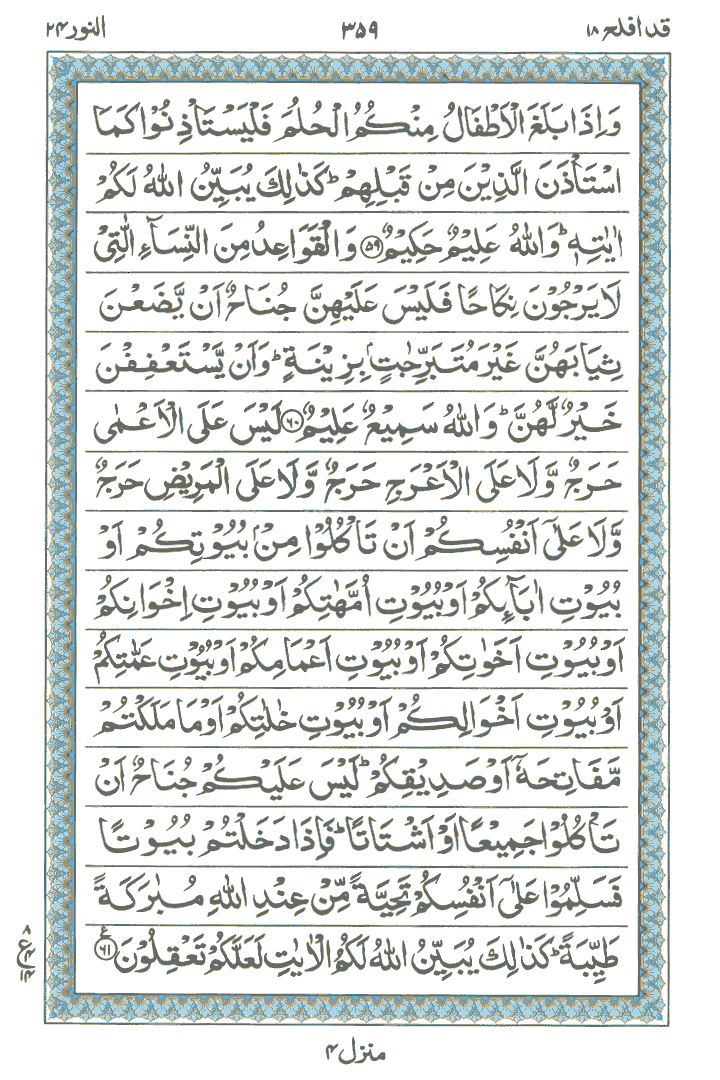 قد افلح ۱۸ ۳۵۹ النور ۲۴
وَاِذَا بَلَغَ الْاَطْفَالُ مِنْكُمُ الْحُلُمَ فَلْيَسْتَاْذِنُوْا كَمَا
اسْتَاْذَنَ الَّذِيْنَ مِنْ قَبْلِهِمْ ؕ كَذٰلِكَ يُبَيِّنُ اللّٰهُ لَكُمْ
اٰيٰتِهٖ ؕ وَاللّٰهُ عَلِيْمٌ حَكِيْمٌ ﴿۵۹﴾ وَالْقَوَاعِدُ مِنَ النِّسَآءِ الّٰتِيْ
لَا يَرْجُوْنَ نِكَاحًا فَلَيْسَ عَلَيْهِنَّ جُنَاحٌ اَنْ يَّضَعْنَ
ثِيَابَهُنَّ غَيْرَ مُتَبَرِّجٰتٍۭ بِزِيْنَةٍ ؕ وَاَنْ يَّسْتَعْفِفْنَ
خَيْرٌ لَّهُنَّ ؕ وَاللّٰهُ سَمِيْعٌ عَلِيْمٌ ﴿۶۰﴾ لَيْسَ عَلَى الْاَعْمٰى
حَرَجٌ وَّلَا عَلَى الْاَعْرَجِ حَرَجٌ وَّلَا عَلَى الْمَرِيْضِ حَرَجٌ
وَّلَا عَلٰٓى اَنْفُسِكُمْ اَنْ تَاْكُلُوْا مِنْۢ بُيُوْتِكُمْ اَوْ
بُيُوْتِ اٰبَآئِكُمْ اَوْ بُيُوْتِ اُمَّهٰتِكُمْ اَوْ بُيُوْتِ اِخْوَانِكُمْ
اَوْ بُيُوْتِ اَخَوٰتِكُمْ اَوْ بُيُوْتِ اَعْمَامِكُمْ اَوْ بُيُوْتِ عَمّٰتِكُمْ
اَوْ بُيُوْتِ اَخْوَالِكُمْ اَوْ بُيُوْتِ خٰلٰتِكُمْ اَوْ مَا مَلَكْتُمْ
مَّفَاتِحَهٗٓ اَوْ صَدِيْقِكُمْ ؕ لَيْسَ عَلَيْكُمْ جُنَاحٌ اَنْ
تَاْكُلُوْا جَمِيْعًا اَوْ اَشْتَاتًا ؕ فَاِذَا دَخَلْتُمْ بُيُوْتًا
فَسَلِّمُوْا عَلٰٓى اَنْفُسِكُمْ تَحِيَّةً مِّنْ عِنْدِ اللّٰهِ مُبٰرَكَةً
طَيِّبَةً ؕ كَذٰلِكَ يُبَيِّنُ اللّٰهُ لَكُمُ الْاٰيٰتِ لَعَلَّكُمْ تَعْقِلُوْنَ ﴿۶۱﴾ ع
۸
ع ۴
۱۴
منزل ۴